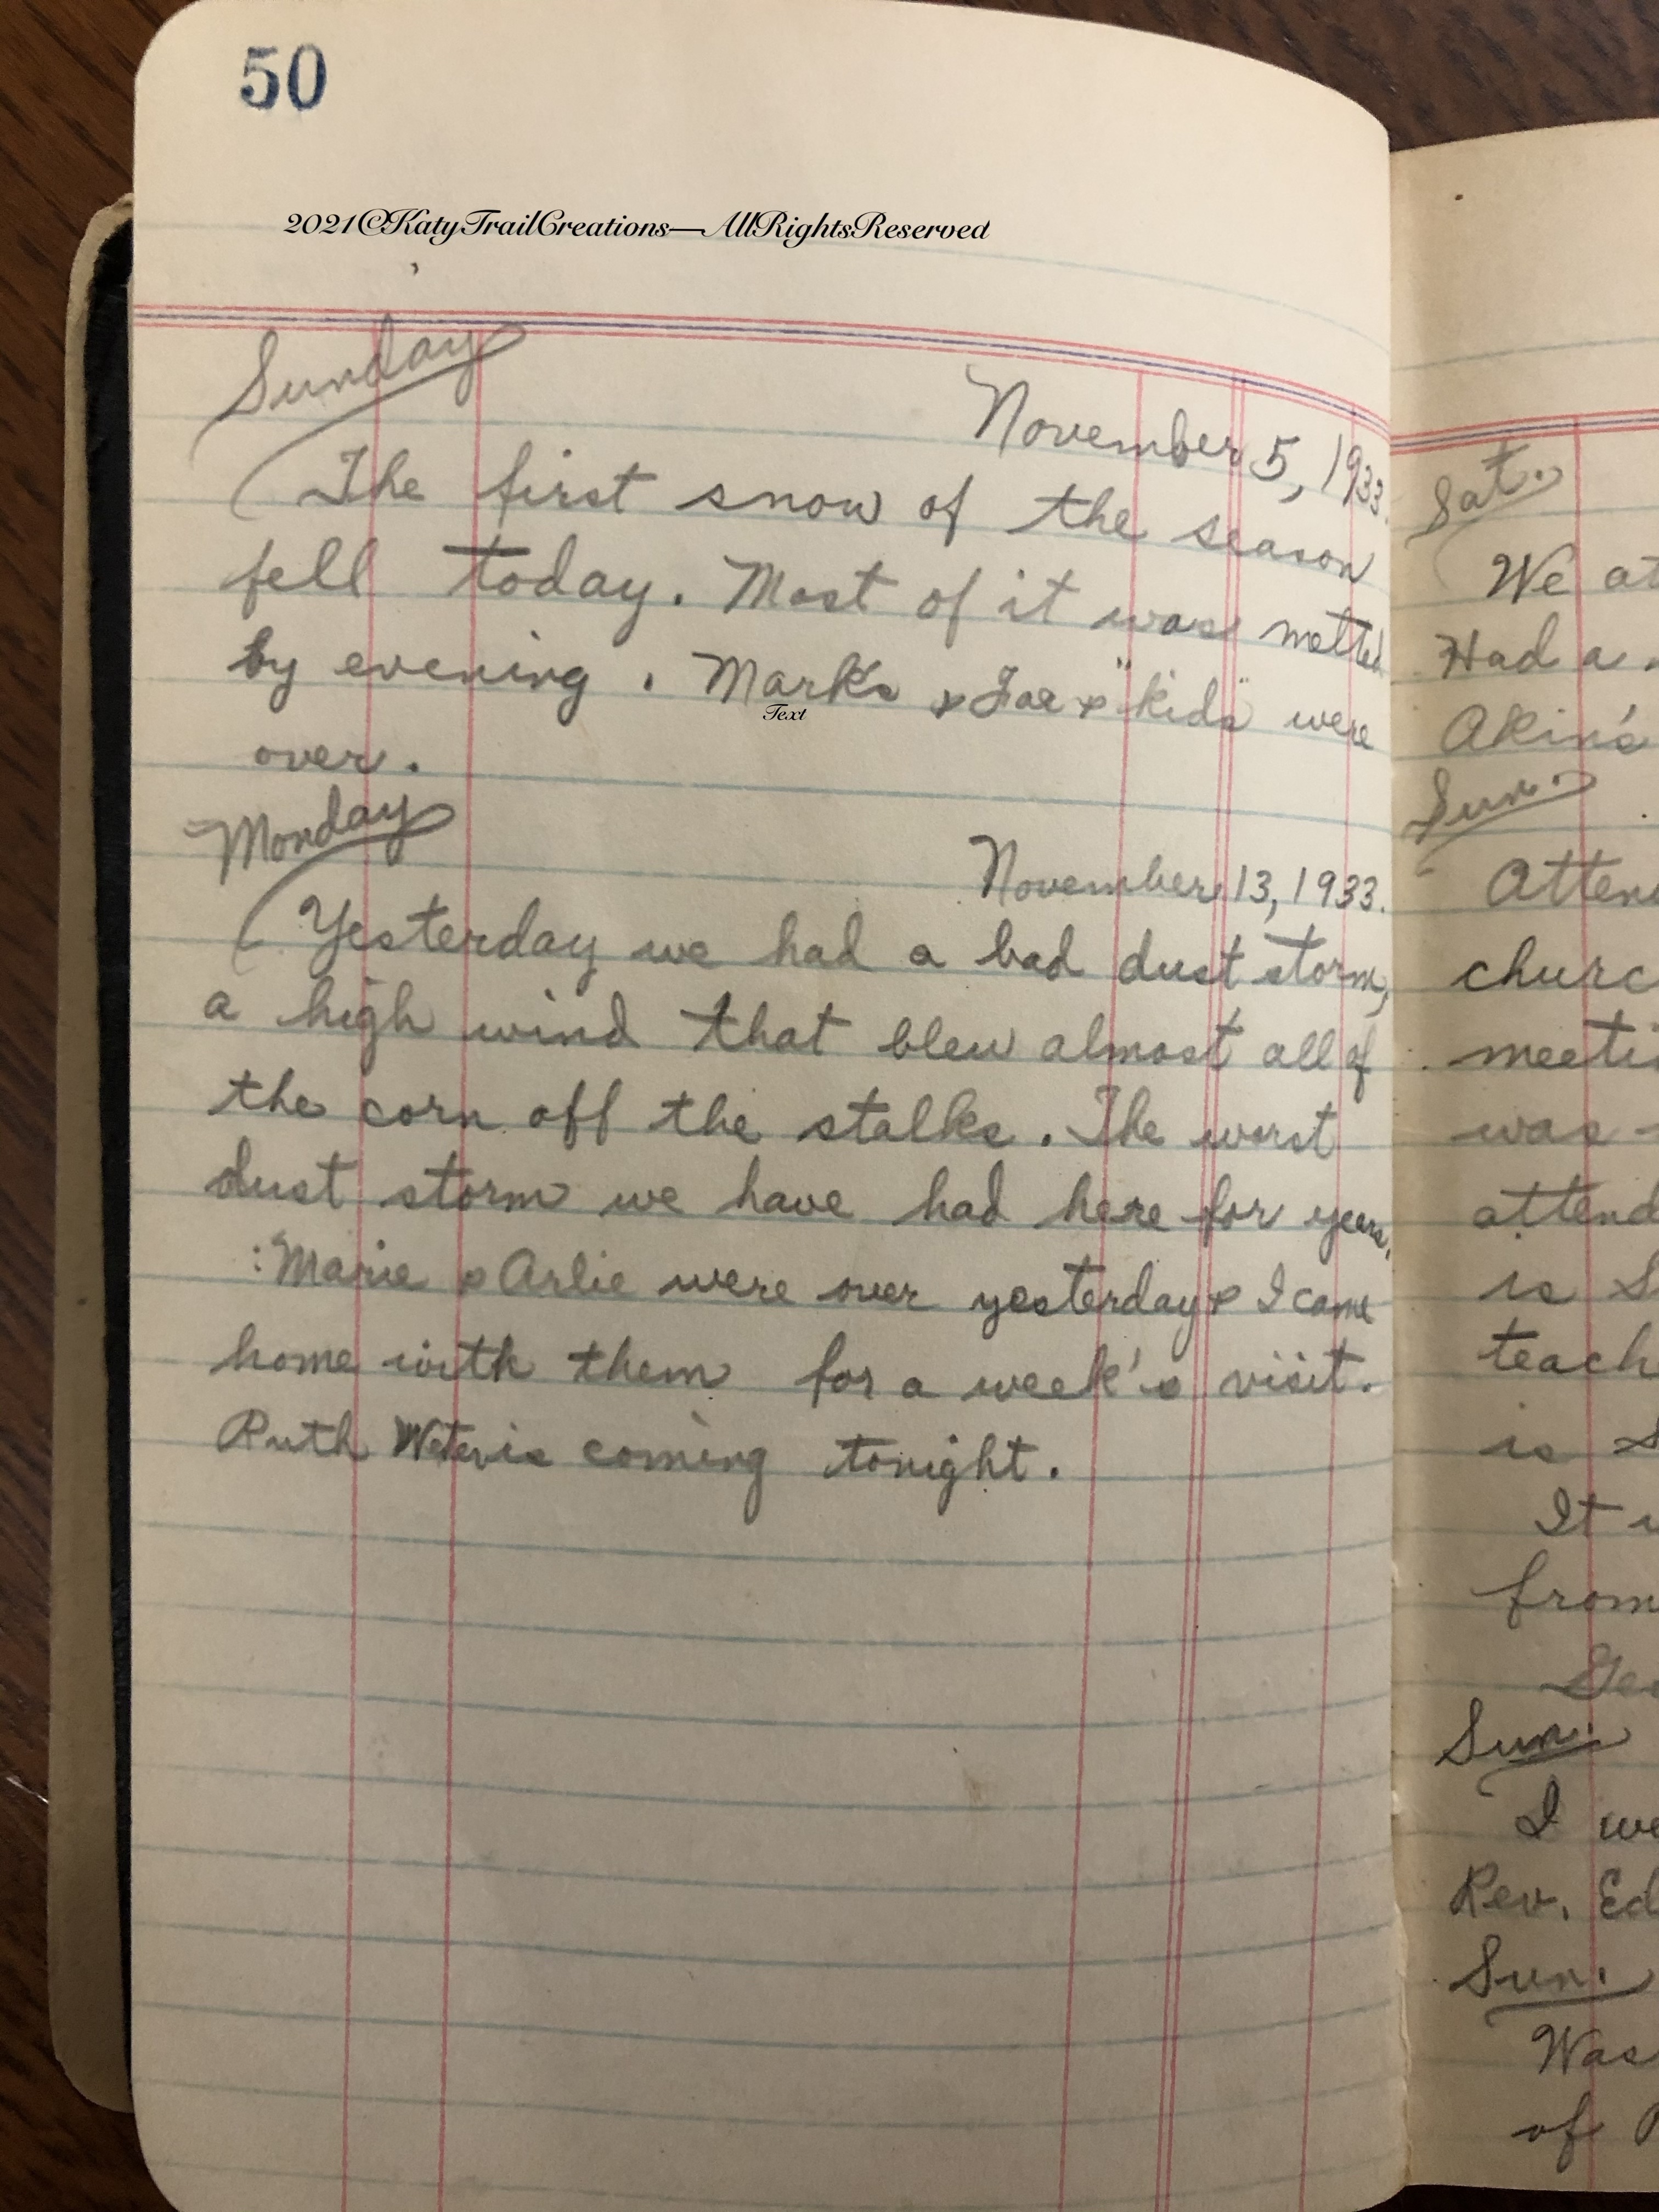 50
2021©KatyTrailCreations—AllRightsReserved
Sunday
November 5, 1933.
The first snow of the season
fell today. Most of it was melted
by evening. Mark's & Joe & "kids" were
Text
over.
Monday
November 13, 1933.
Yesterday we had a bad dust storm,
a high wind that blew almost all of
the corn off the stalks. The worst
dust storm we have had here for years.
Marie & Arlie were over yesterday & I came
home with them for a week's visit.
Ruth coming tonight.
Sat.
We at
Had a
Akin's
Sun.
Atten
churc
meeti
was
attend
is S
teach
is S
It w
from
Geo
Sun.
I we
Rev. Ed
Sun.
Was
of